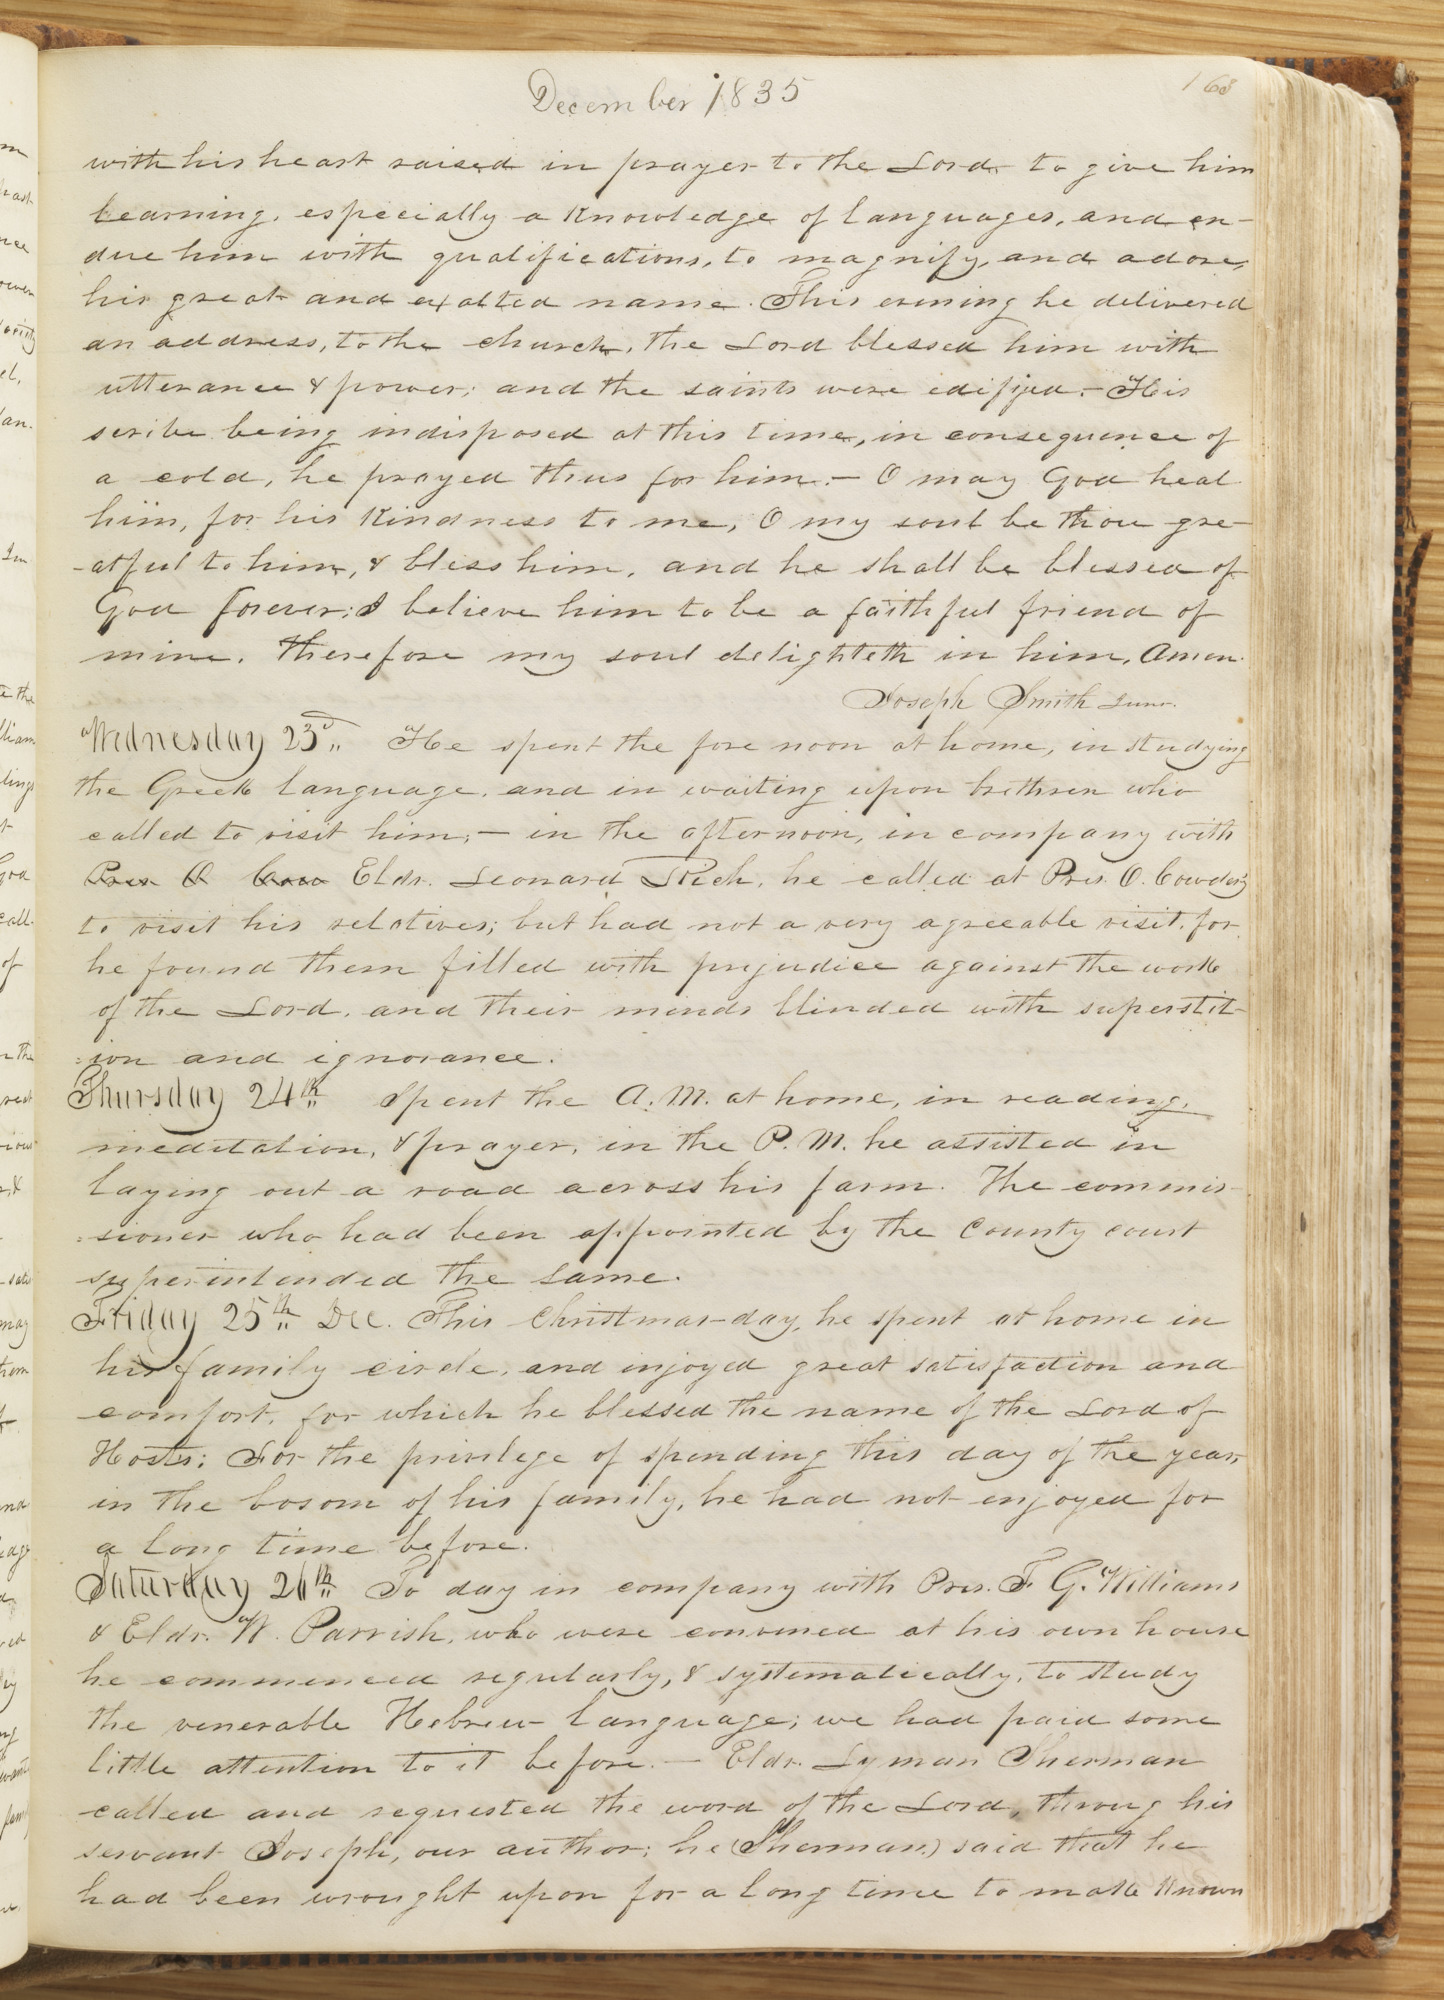 December 1835
168
with his heart raised in prayer to the Lord to give him
learning, especially a knowledge of languages, and en-
due him with qualifications, to magnify, and adore,
his great and exalted name. This evening he delivered
an address, to the church, the Lord blessed him with
utterance & power; and the saints were edifyed.– His
scribe being indisposed at this time, in consequence of
a cold, he prayed thus for him.– O may God heal
him, for his kindness to me, O my soul be thou gre-
-atful to him, & bless him, and he shall be blessed of
God forever; I believe him to be a faithful friend of
mine. Therefore my soul delighteth in him, Amen.
Joseph Smith Junr.
Wednesday 23d. He spent the fore noon at home, in studying
the Greek language, and in waiting upon brethren who
called to visit him;– in the afternoon, in company with
Pres O Cow Eldr. Leonard Rich, he called at Pres. O. Cowdery
to visit his relatives; but had not a very agreeable visit, for
he found them filled with prejudice against the work
of the Lord, and their minds blinded with superstit-
=ion and ignorance.
Thursday 24th. Spent the A.M. at home, in reading,
meditation, & prayer, in the P.M. he assisted in
laying out a road across his farm. The commis-
=sioner who had been appointed by the County court
superintended the same.
Friday 25th. Dec. This Christmas-day, he spent at home in
his family circle, and injoyed great satisfaction and
comfort, for which he blessed the name of the Lord of
Hosts; For the privilege of spending this day of the year,
in the bosom of his family, he had not enjoyed for
a long time before.
Saturday 26th. To day in company with Pres. F. G. Williams
& Eldr. W. Parrish, who were convened at his own house
he commenced regularly, & systematically, to study
the venerable Hebrew language; we had paid some
little attention to it before.– Eldr. Lyman Sherman
called and requested the word of the Lord, throug his
servant Joseph, our author; he (Sherman) said that he
had been wrought upon for a long time to make known